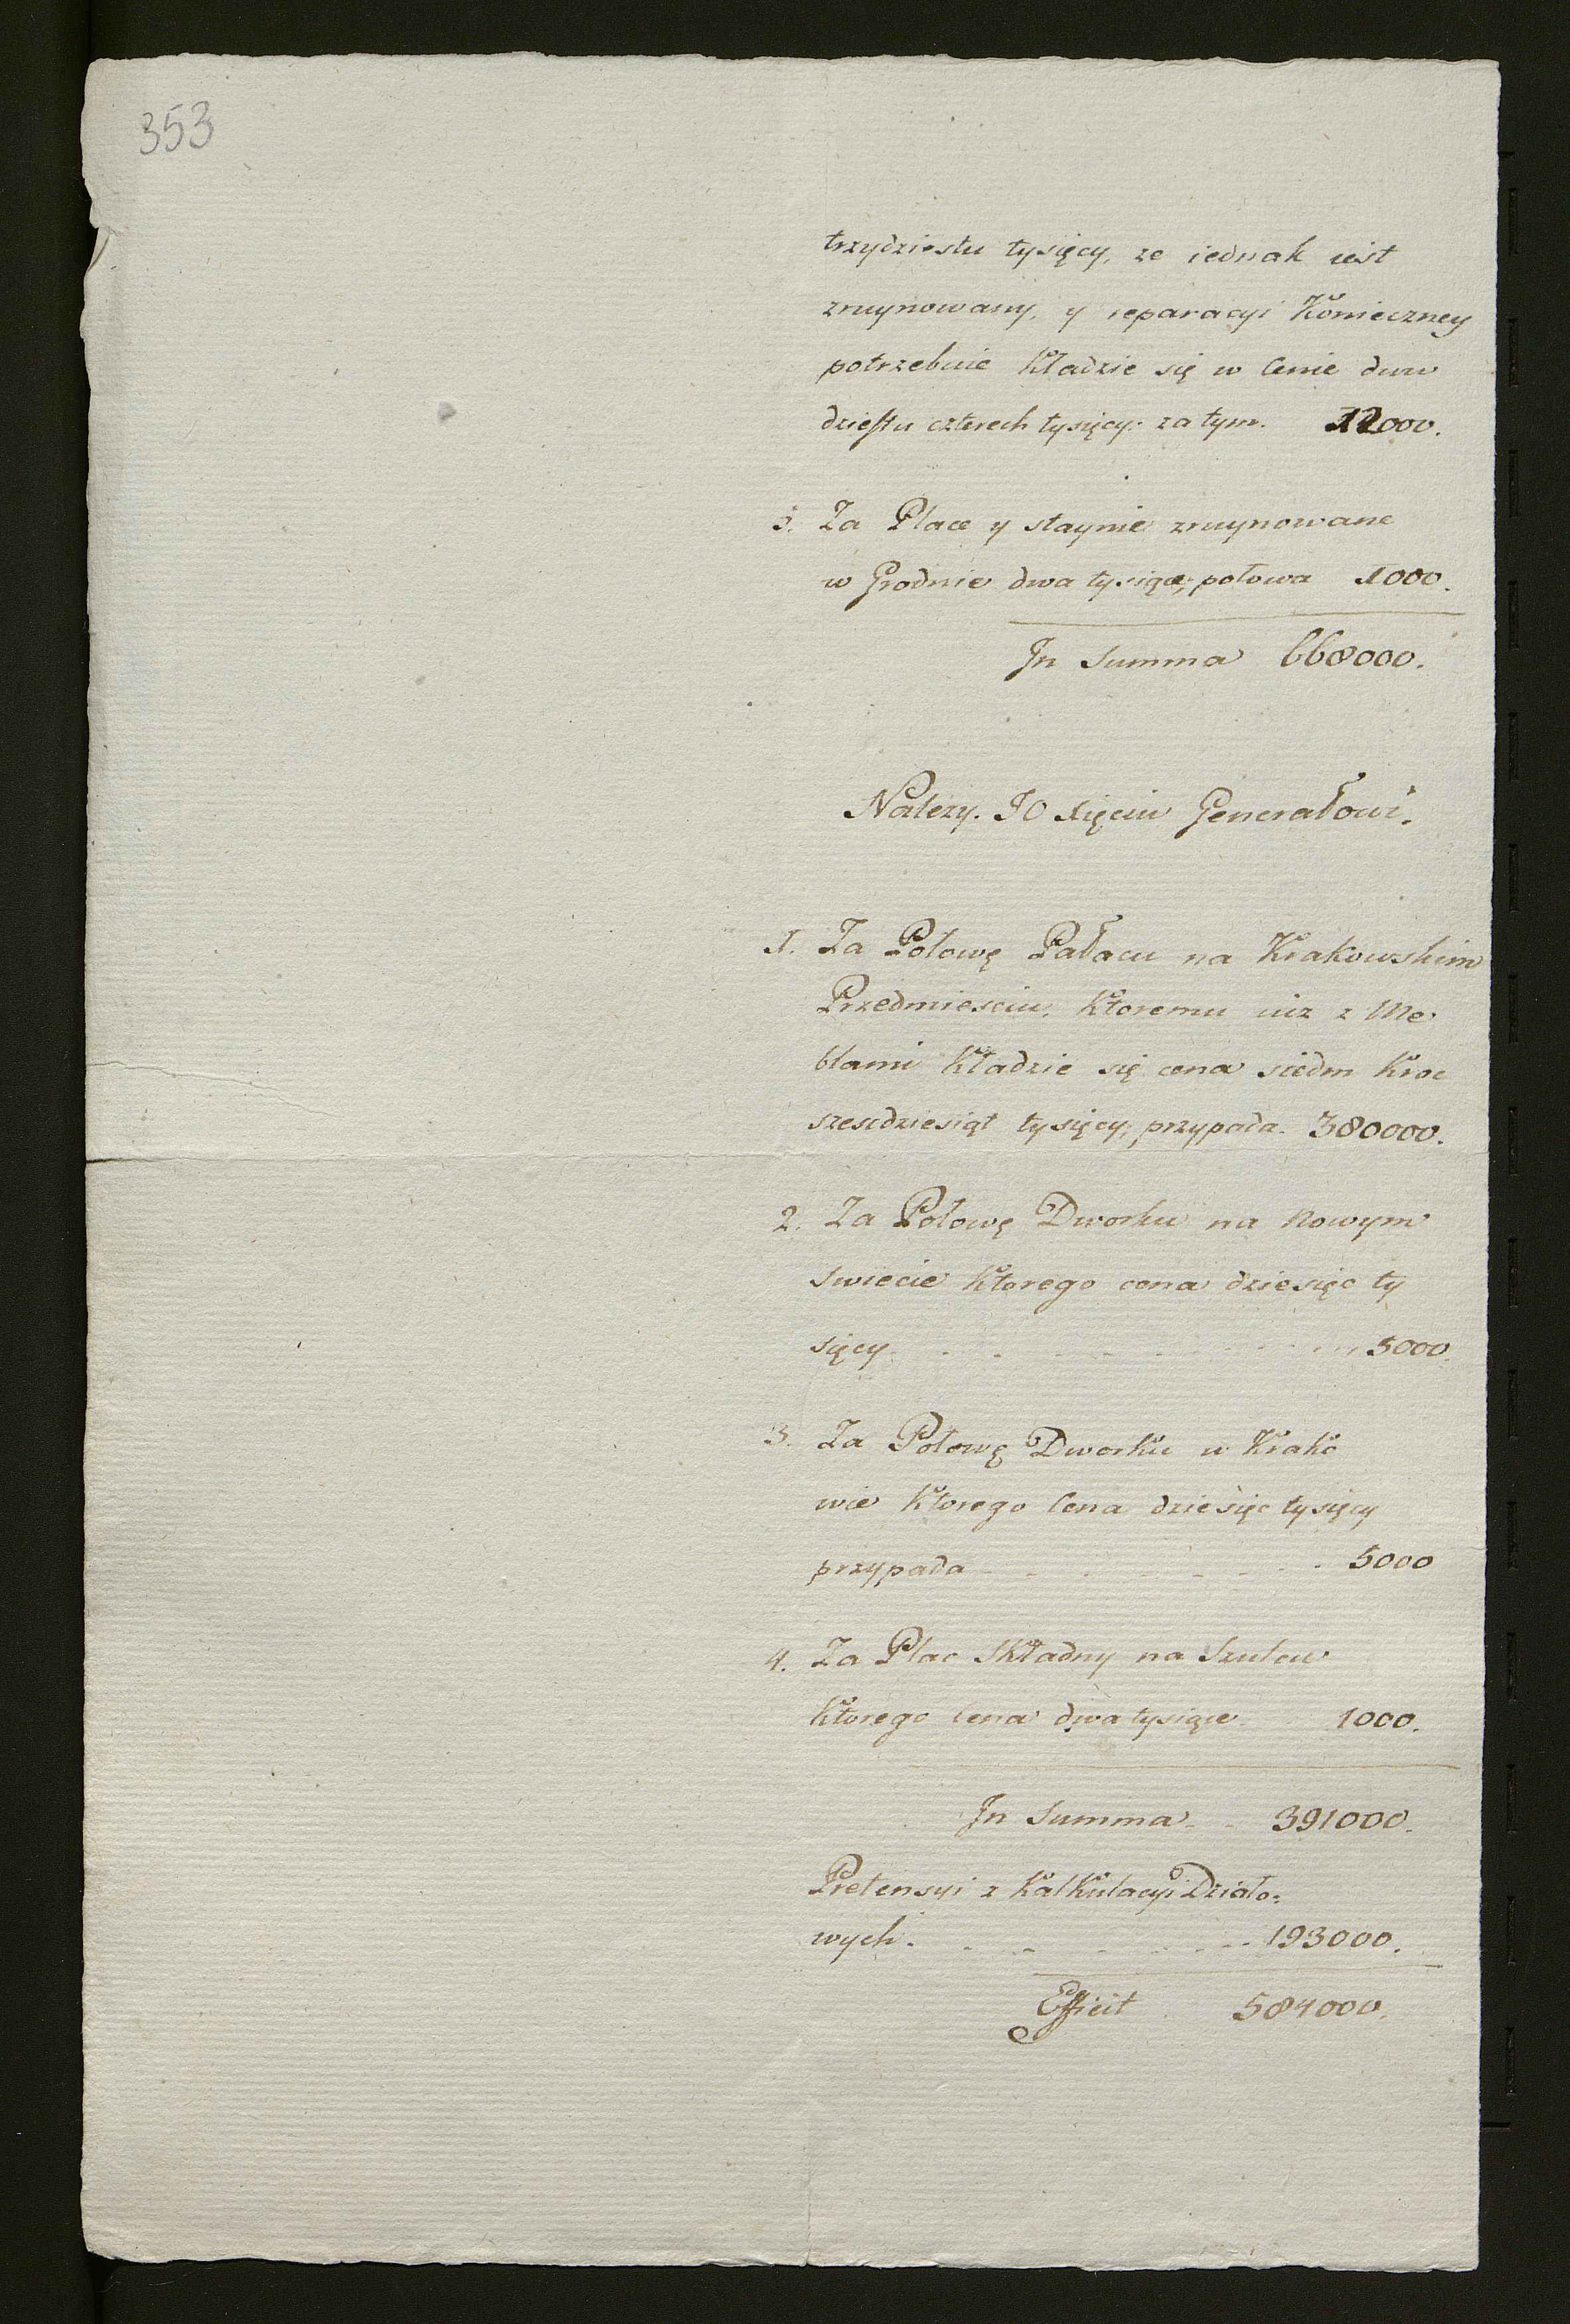 353
trzydziestu tysięcy, ze iednak iest
zruynowany, y reparacyi Konieczney
potrzebuie kładzie się w Cenie dwu
dziestu czterech tysięcy: za tym. 12000.
5. Za Place y staynie zruynowane
w Grodnie dwa tysiące, połowa 1000.
Jn Summa 668000.
Nalezy. JO Xięciu Generałowi.
1. Za Połowę Pałacu na Krakowskim
Przedmiesciu, Ktoremu iuz z Me
blami kładzie się cena siedm kroc
szescdziesiąt tysięcy, przypada. 380000.
2. Za Połowę Dworku na Nowym
Swiecie Ktorego cena dziesięc ty
sięcy 5000.
3. Za Połowę Dworku w Krako
wie Ktorego Cena dziesięc tysięcy
przypada 5000
4. Za Plac Składny na Szulcu
Ktorego Cena dwa tysiące 1000.
Jn Summa 391000.
Pretensyi z Kalkulacyi Działo:
wych. 193000.
Efficit 584000.